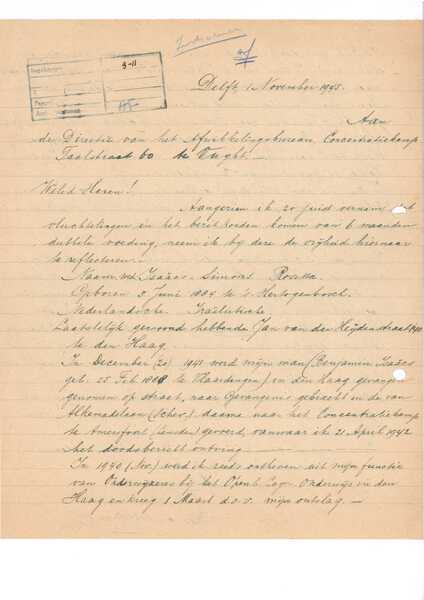 3-11
Delft, 1 November 1945.
Aan
de Directie van het Afwikkelingsbureau Concentratiekamp
Taalstraat 60 te Vught.
Weled. Heren!
Aangezien ik zo juist vernam dat
vluchtelingen in het bezit konden komen van 6 maanden
dubbele voeding, neem ik bij deze de vrijheid hiernaar
te reflecteren.
Naam: wed. Izaäcs-Simons Rosetta
Geboren 3 Juni 1884 te 's Hertogenbosch.
Nederlandsche Israëlitische
Laatstelijk gewoond hebbende Jan van der Heijdenstraat
te den Haag.
In December (20) 1941 werd mijn man (Benjamin Izaäcs
geb. 25 Feb te Vlaardingen) in den Haag gevangen
genomen op straat, naar Gevangenis gebracht in de van
Alkemadelaan (Schev.) daarna naar het Concentratiekamp
te Amersfoort gevoerd, vanwaar ik 21 April 1942
het doodsbericht ontving.
In 1940 (Nov.) werd ik reeds ontheven uit mijn functie
van Onderwijzeres bij het Openb. Lager Onderwijs in den
Haag en kreeg 1 Maart d.o.v. mijn ontslag. —